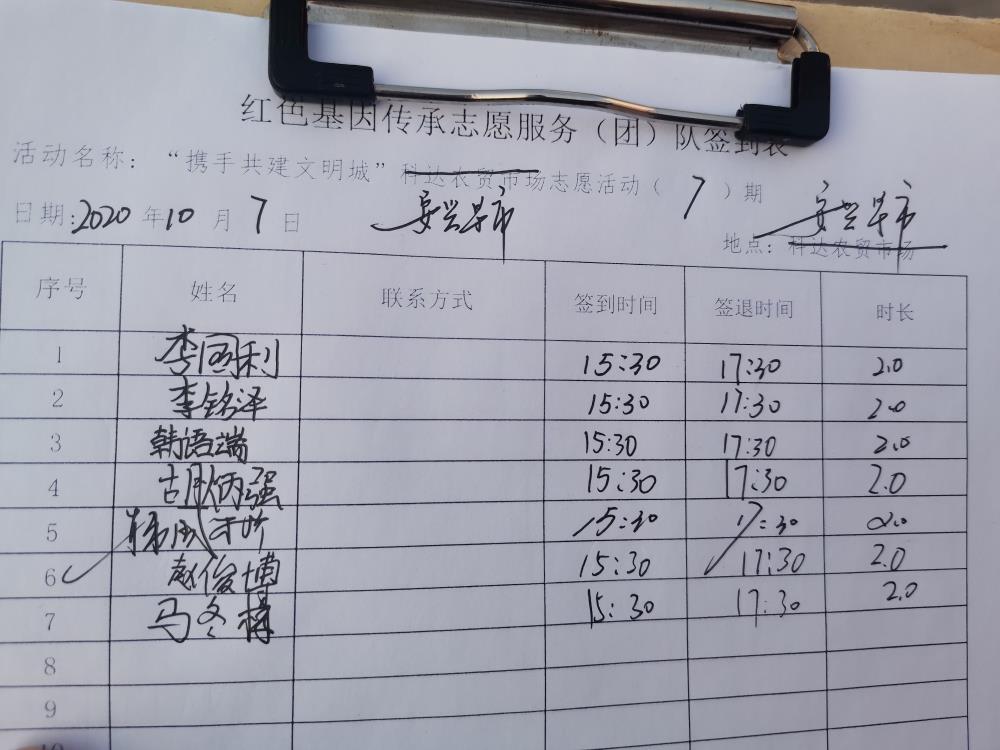 红色基因传承志愿服务（团）队签到表
活动名称：“携手共建文明城”科达农贸市场志愿活动（ 7 ）期
日期：2020 年 10 月 7 日 安兴早市 安兴早市
地点：科达农贸市场
序号 姓名 联系方式 签到时间 签退时间 时长
1 李国利 15:30 17:30 2.0
2 李铭泽 15:30 17:30 2.0
3 韩语端 15:30 17:30 2.0
4 胡炳强 15:30 17:30 2.0
5 15:30 17:30 2.0
6 赵俊博 15:30 17:30 2.0
7 马冬 15:30 17:30 2.0
8
9
10